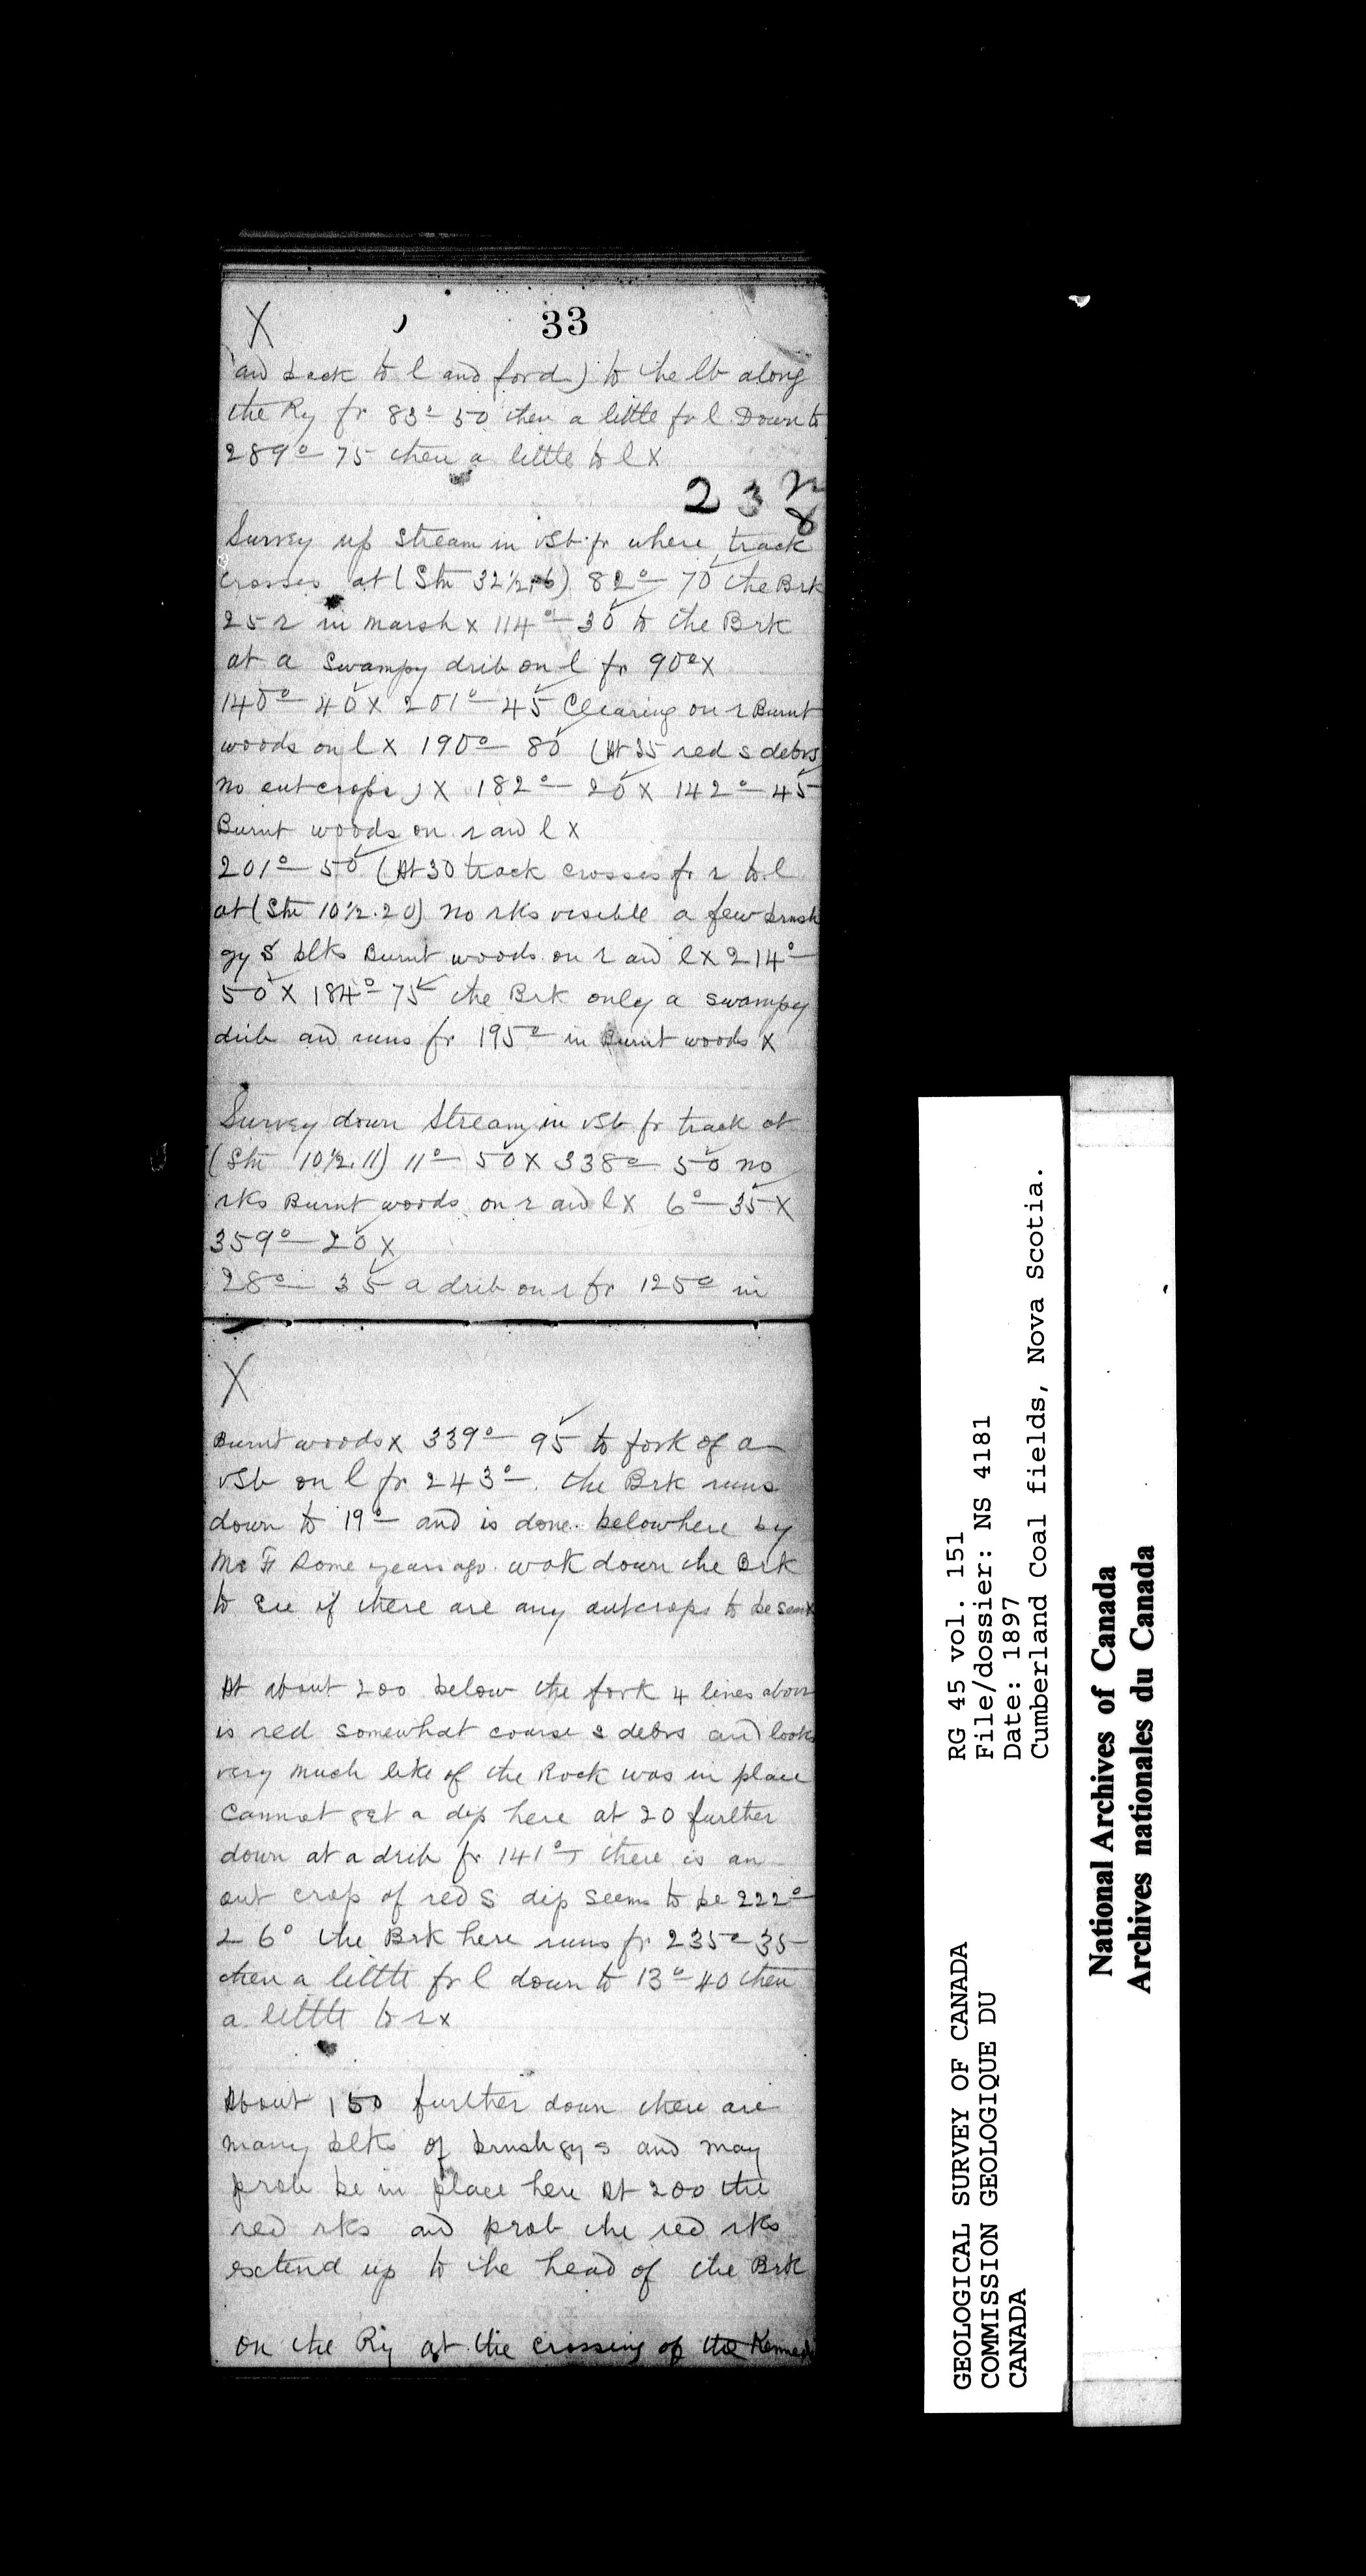 X 33
and back to l and ford) to the lb along
the Ry fr 83° 50 then a little fr l Down to
289° 75 then a little to l X
23
Survey up Stream in vSb fr where track
crosses at (Stn 32½.6) 82° 70 the Brk
25 r in marsh x 114° 30 to the Brk
at a Swampy drib on l fr 90° x
140° 40 x 201° 45 Clearing on r Burnt
woods on l x 190° 80 (At 35 red s debrs
no outcrops) X 182° 20 x 142° 45
Burnt woods on r and l X
201° 50 (At 30 track crosses fr r to l
at (Stn 10½.20) no rks visible a few brnsh
gy S blks Burnt woods on r and l x 214°
50 X 184° 75 the Brk only a swampy
drib and runs fr 195° in Burnt woods X
Survey down Stream in vSb fr track at
(Stn 10½.11) 11° 50 X 338° 50 no
rks Burnt woods on r and l X 6° 35 X
359° 20 X
28° 35 a drib on r fr 125° in
X
Burnt woods x 339° 95 to fork of a
vSb on l fr 243°. the Brk runs
down to 19° and is done below here by
Mr F some years ago. walk down the Brk
to see if there are any outcrops to be seen x
At about 200 below the fork 4 lines above
is red somewhat coarse s debrs and looks
very much like if the Rock was in place
Cannot get a dip here at 20 further
down at a drib fr 141° there is an
out crop of red S dip seems to be 222°
∠ 6° the Brk here runs fr 235° 35
then a little fr l down to 13° 40 then
a little to r x
About 150 further down there are
many blks of brnsh gy s and may
prob be in place here At 200 the
red rks and prob the red rks
extend up to the head of the Brk
On the Ry at the crossing of the Kenned
GEOLOGICAL SURVEY OF CANADA
COMMISSION GEOLOGIQUE DU
CANADA
RG 45 vol. 151
File/dossier: NS 4181
Date: 1897
Cumberland Coal fields, Nova Scotia.
National Archives of Canada
Archives nationales du Canada